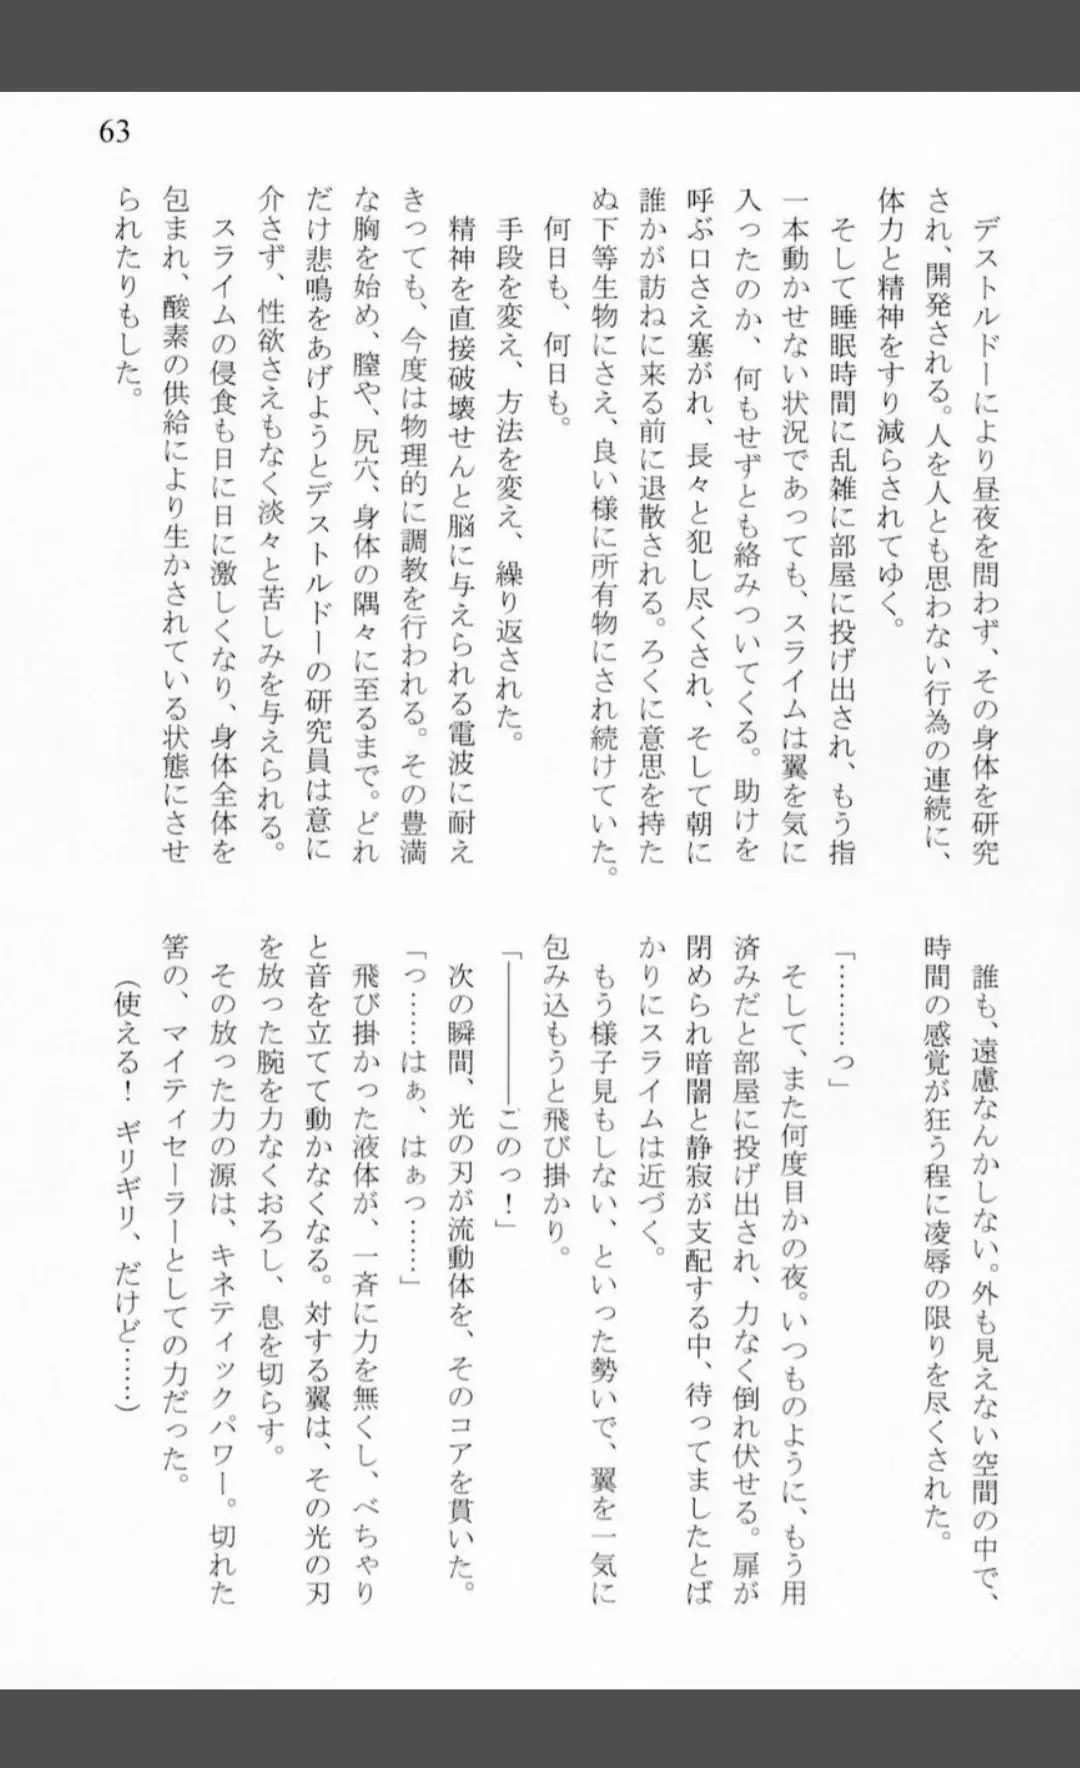 63
デストルドーにより昼夜を問わず、その身体を研究
され、開発される。人を人とも思わない行為の連続に、
体力と精神をすり減らされてゆく。
そして睡眠時間に乱雑に部屋に投げ出され、もう指
一本動かせない状況であっても、スライムは翼を気に
入ったのか、何もせずとも絡みついてくる。助けを
呼ぶ口さえ塞がれ、長々と犯し尽くされ、そして朝に
誰かが訪ねに来る前に退散される。ろくに意思を持た
ぬ下等生物にさえ、良い様に所有物にされ続けていた。
何日も、何日も。
手段を変え、方法を変え、繰り返された。
精神を直接破壊せんと脳に与えられる電波に耐え
きっても、今度は物理的に調教を行われる。その豊満
な胸を始め、膣や、尻穴、身体の隅々に至るまで。どれ
だけ悲鳴をあげようとデストルドーの研究員は意に
介さず、性欲さえもなく淡々と苦しみを与えられる。
スライムの侵食も日に日に激しくなり、身体全体を
包まれ、酸素の供給により生かされている状態にさせ
られたりもした。
誰も、遠慮なんかしない。外も見えない空間の中で、
時間の感覚が狂う程に凌辱の限りを尽くされた。
「………っ」
そして、また何度目かの夜。いつものように、もう用
済みだと部屋に投げ出され、力なく倒れ伏せる。扉が
閉められ暗闇と静寂が支配する中、待ってましたとば
かりにスライムは近づく。
もう様子見もしない、といった勢いで、翼を一気に
包み込もうと飛び掛かり。
「――――このっ！」
次の瞬間、光の刃が流動体を、そのコアを貫いた。
「っ……はぁ、はぁっ……」
飛び掛かった液体が、一斉に力を無くし、べちゃり
と音を立てて動かなくなる。対する翼は、その光の刃
を放った腕を力なくおろし、息を切らす。
その放った力の源は、キネティックパワー。切れた
筈の、マイティセーラーとしての力だった。
（使える！ ギリギリ、だけど……）